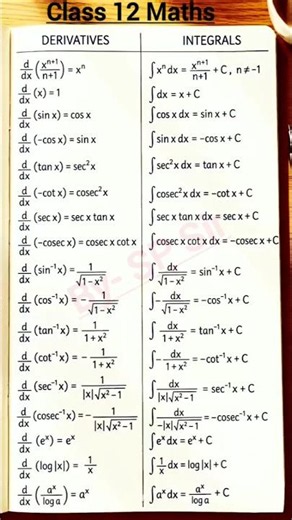 Class 12 Maths
DERIVATIVES INTEGRALS
d/dx (xⁿ⁺¹/n+1) = xⁿ ∫xⁿ dx = xⁿ⁺¹/n+1 + C, n ≠ -1
d/dx (x) = 1 ∫dx = x + C
d/dx (sin x) = cos x ∫cos x dx = sin x + C
d/dx (-cos x) = sin x ∫sin x dx = -cos x + C
d/dx (tan x) = sec²x ∫sec²x dx = tan x + C
d/dx (-cot x) = cosec²x ∫cosec²x dx = -cot x + C
d/dx (sec x) = sec x tan x ∫sec x tan x dx = sec x + C
d/dx (-cosec x) = cosec x cot x ∫cosec x cot x dx = -cosec x + C
d/dx (sin⁻¹x) = 1/√1-x² ∫dx/√1-x² = sin⁻¹x + C
d/dx (cos⁻¹x) = -1/√1-x² ∫-dx/√1-x² = -cos⁻¹x + C
d/dx (tan⁻¹x) = 1/1+x² ∫dx/1+x² = tan⁻¹x + C
d/dx (cot⁻¹x) = -1/1+x² ∫-dx/1+x² = -cot⁻¹x + C
d/dx (sec⁻¹x) = 1/|x|√x²-1 ∫dx/|x|√x²-1 = sec⁻¹x + C
d/dx (cosec⁻¹x) = -1/|x|√x²-1 ∫dx/-|x|√x²-1 = -cosec⁻¹x + C
d/dx (eˣ) = eˣ ∫eˣ dx = eˣ + C
d/dx (log|x|) = 1/x ∫1/x dx = log|x| + C
d/dx (aˣ/log a) = aˣ ∫aˣ dx = aˣ/log a + C